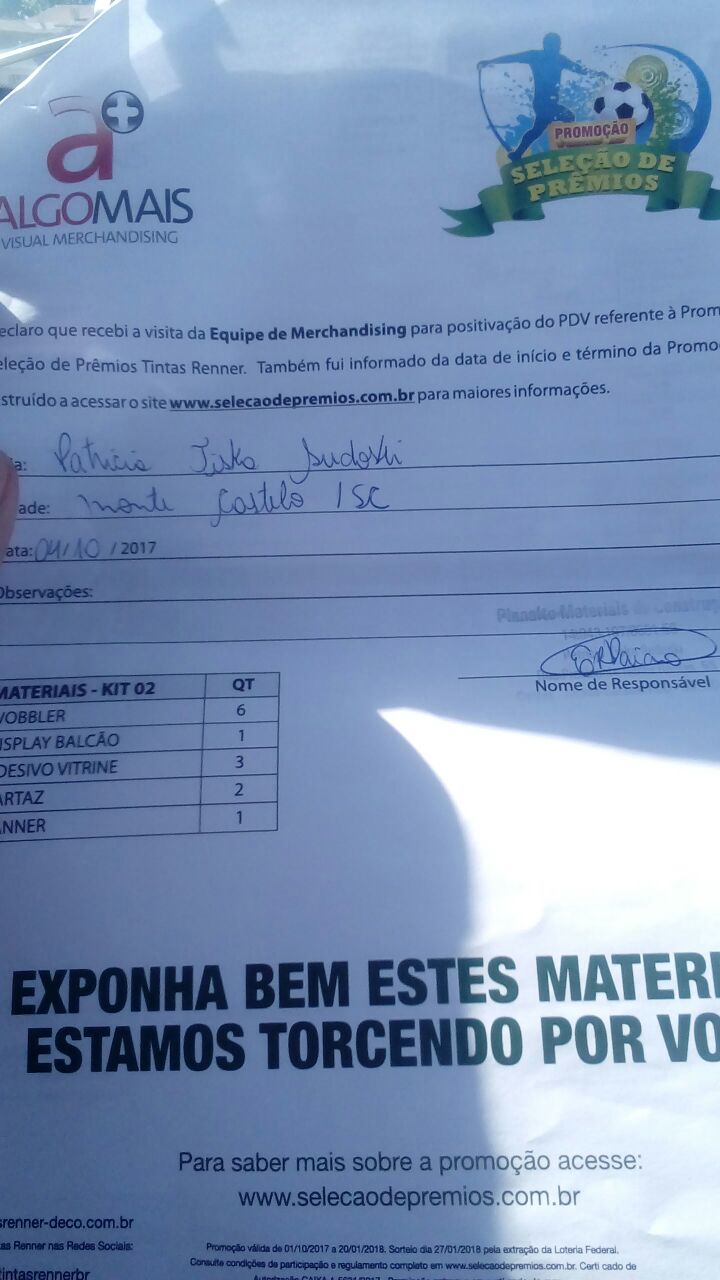 a+
ALGOMAIS
VISUAL MERCHANDISING
PROMOÇÃO
SELEÇÃO DE
PRÊMIOS
eclaro que recebi a visita da Equipe de Merchandising para positivação do PDV referente à Prom
eleção de Prêmios Tintas Renner. Também fui informado da data de início e término da Promo
struído a acessar o site www.selecaodepremios.com.br para maiores informações.
a: Patricia
ade: Monte Castelo / SC
ata: 04/10 / 2017
Observações:
Planalto Materiais de Construç
Nome de Responsável
MATERIAIS - KIT 02 QT
WOBBLER 6
ISPLAY BALCÃO 1
DESIVO VITRINE 3
ARTAZ 2
ANNER 1
EXPONHA BEM ESTES MATERI
ESTAMOS TORCENDO POR VO
Para saber mais sobre a promoção acesse:
www.selecaodepremios.com.br
srenner-deco.com.br
as Renner nas Redes Sociais:
tintasrennerbr
Promoção válida de 01/10/2017 a 20/01/2018. Sorteio dia 27/01/2018 pela extração da Loteria Federal.
Consulte condições de participação e regulamento completo em www.selecaodepremios.com.br. Certi cado de